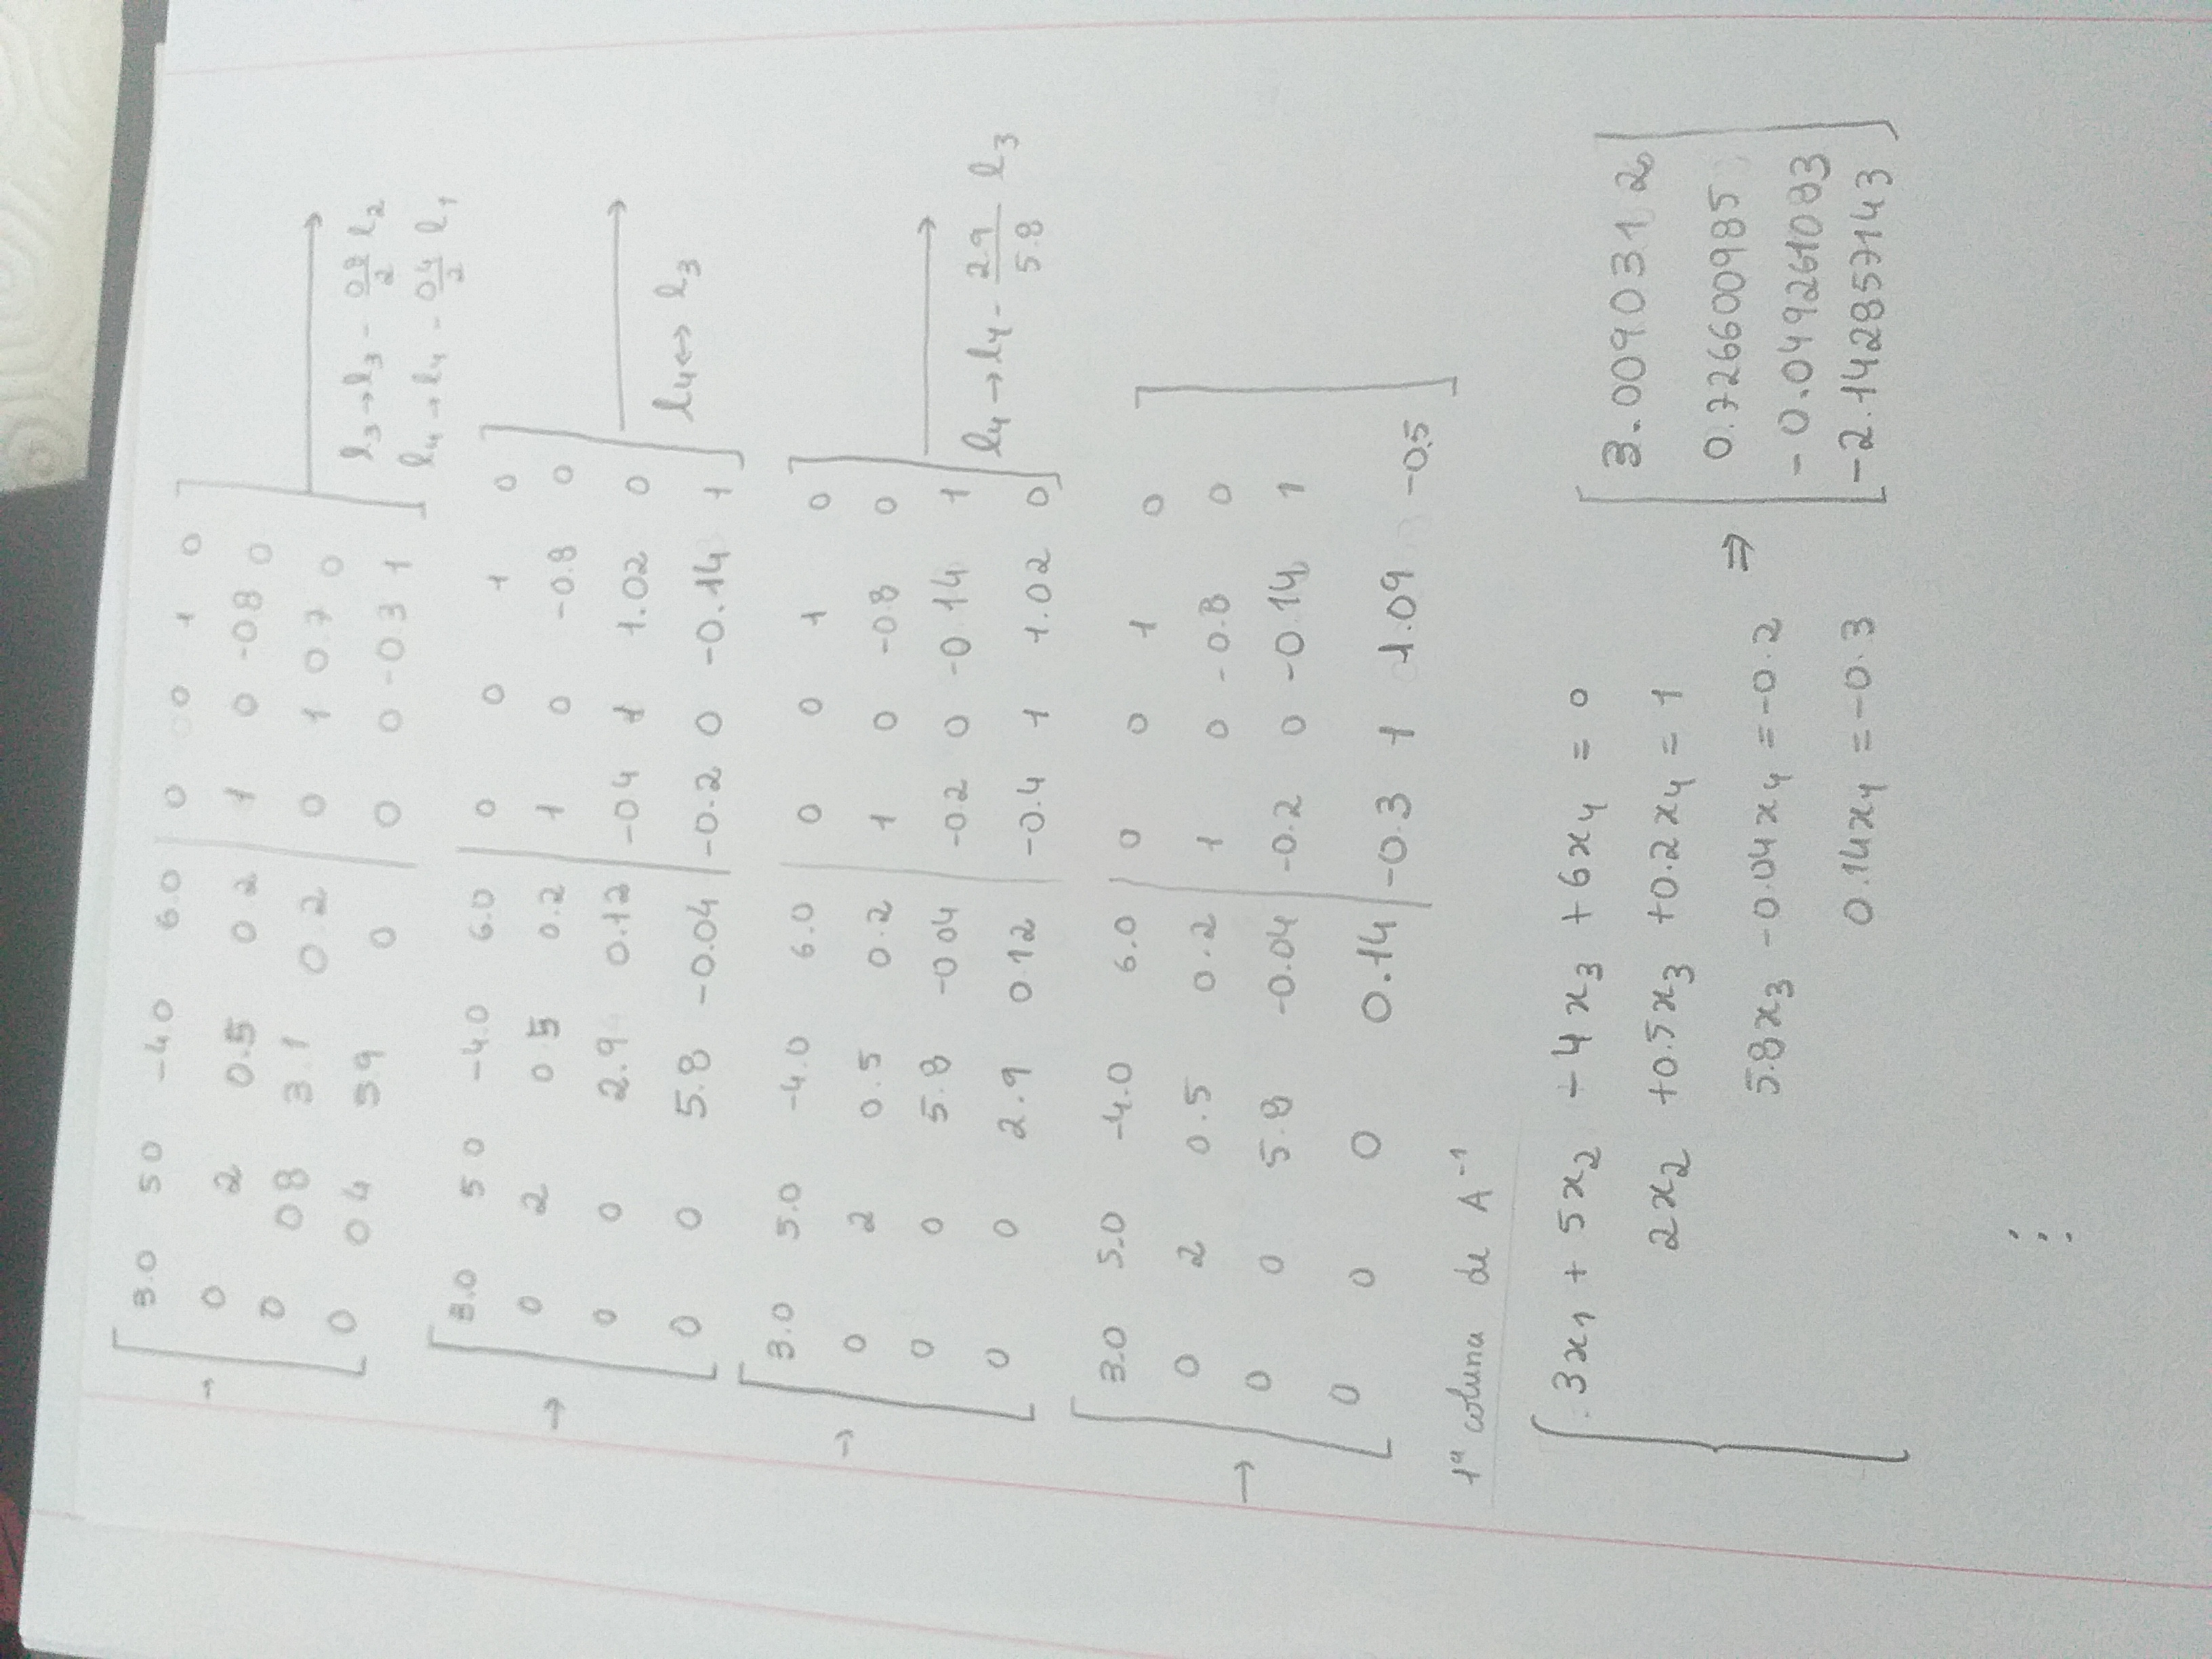 → [ 3.0 5.0 -4.0 6.0 | 0 0 1 0 ]
0 2 0.5 0.2 | 1 0 -0.8 0
0 0.8 3.1 0.2 | 0 1 0.7 0
l3→l3 - 0.8/2 l2
0 0.4 5.9 0 | 0 0 -0.3 1
l4→l4 - 0.4/2 l1
→ [ 3.0 5.0 -4.0 6.0 | 0 0 1 0 ]
0 2 0.5 0.2 | 1 0 -0.8 0
0 0 2.9 0.12 | -0.4 1 1.02 0
l4↔l3
0 0 5.8 -0.04 | -0.2 0 -0.14 1
→ [ 3.0 5.0 -4.0 6.0 | 0 0 1 0 ]
0 2 0.5 0.2 | 1 0 -0.8 0
0 0 5.8 -0.04 | -0.2 0 -0.14 1
l4→l4 - 2.9/5.8 l3
0 0 2.9 0.12 | -0.4 1 1.02 0
→ [ 3.0 5.0 -4.0 6.0 | 0 0 1 0 ]
0 2 0.5 0.2 | 1 0 -0.8 0
0 0 5.8 -0.04 | -0.2 0 -0.14 1
0 0 0 0.14 | -0.3 1 1.09 -0.5
1ª coluna de A⁻¹
3x1 + 5x2 - 4x3 + 6x4 = 0
2x2 + 0.5x3 + 0.2x4 = 1
5.8x3 - 0.04x4 = -0.2
0.14x4 = -0.3
⇒
3.0090312
0.726600985
-0.049261083
-2.142857143
⋮